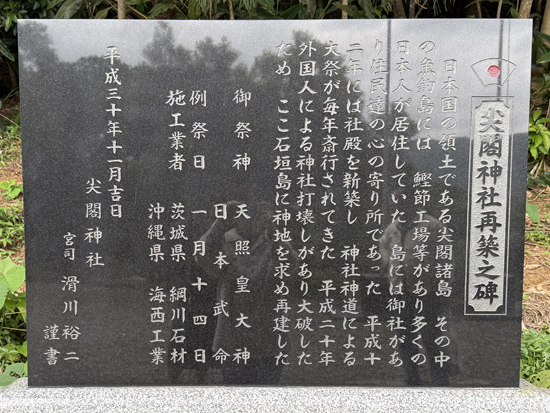 尖閣神社再築之碑
日本国の領土である尖閣諸島 その中
の魚釣島には 鰹節工場等があり多くの
日本人が居住していた 島には御社があ
り住民達の心の寄り所であった 平成十
二年には社殿を新築し 神社神道による
大祭が毎年斎行されてきた 平成二十年
外国人による神社打壊しがあり大破した
ため ここ石垣島に神地を求め再建した
御祭神 天照皇大神
日本武命
例祭日 一月十四日
施工業者 茨城県 綱川石材
沖縄県 海西工業
平成三十年十一月吉日
尖閣神社
宮司 滑川裕二 謹書